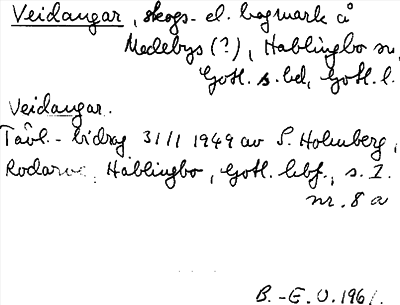 Veidangar, skogs- el. hagmark å
Medebys (?), Hablingbo sn,
Gotl. s. hd, Gotl. l.
Veidangar.
Tävl.-bidrag 31/1 1949 av S. Holmberg,
Rodarve, Hablingbo, Gotl. hbf., s. 1.
nr. 8 a
B.-E. O. 1961.